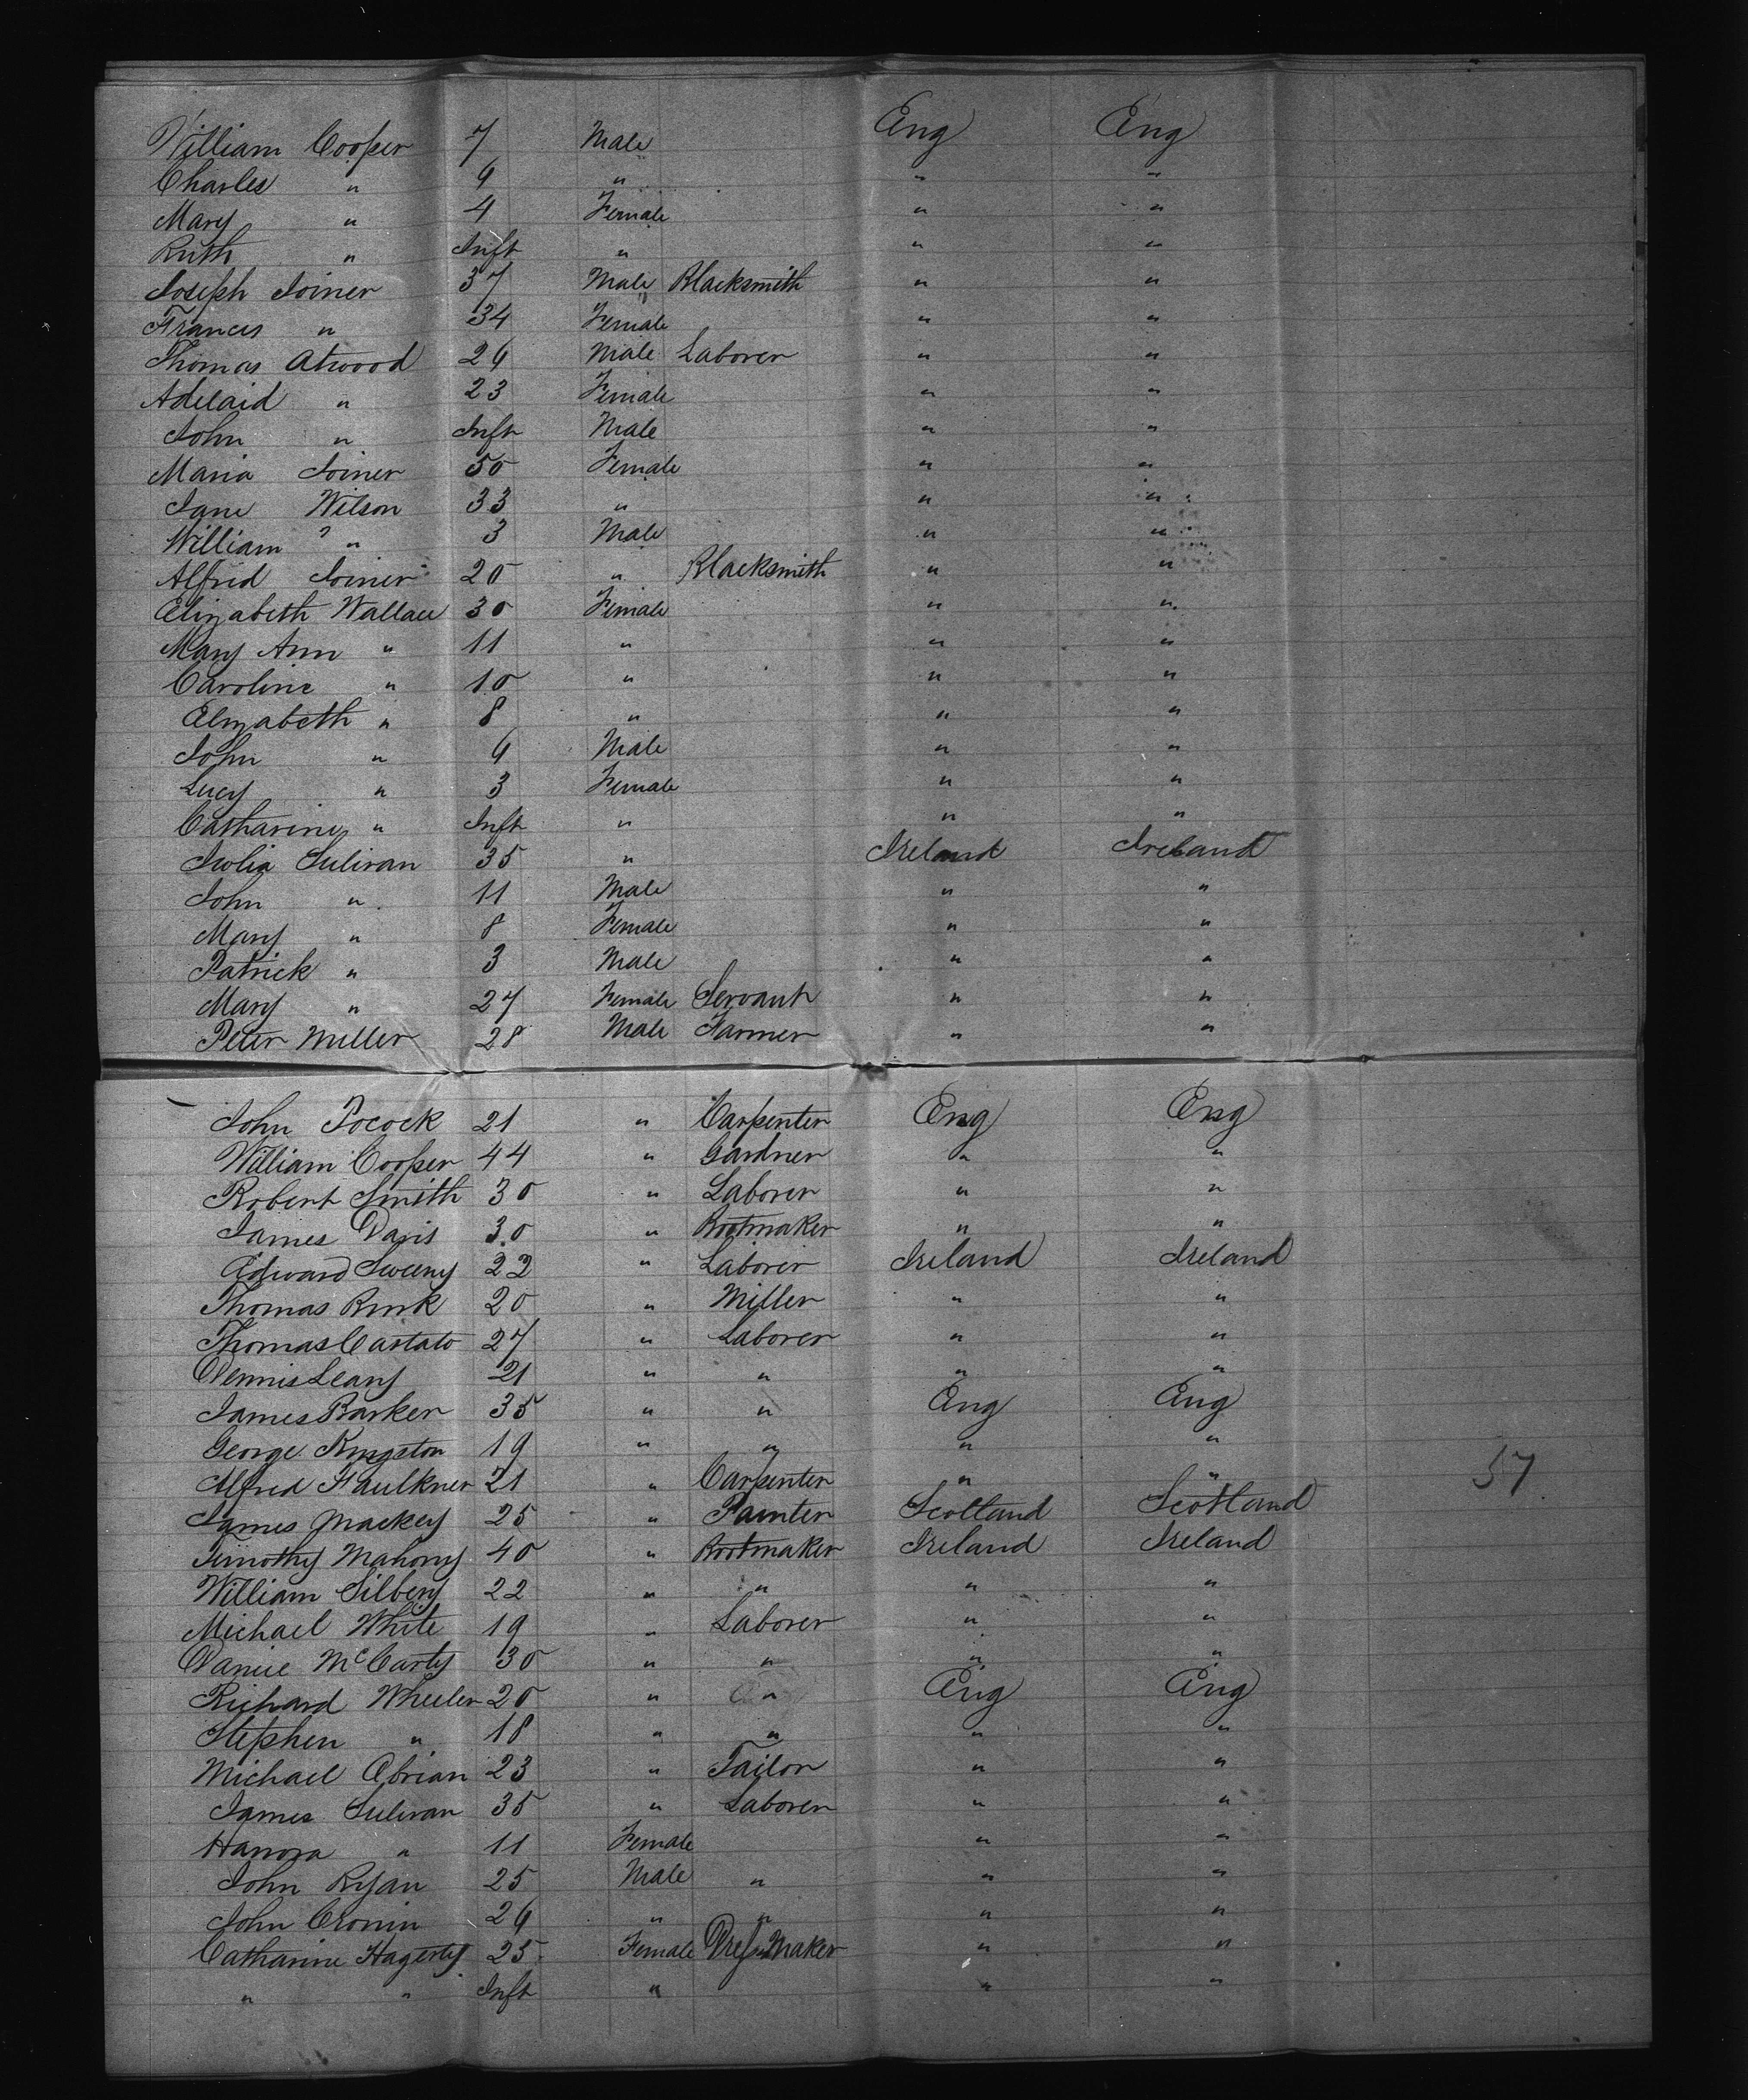 William Cooper 7 Male Eng Eng
Charles " 6 " " "
Mary " 4 Female " "
Ruth " Inft " " "
Joseph Joiner 37 Male Blacksmith " "
Frances " 34 Female " "
Thomas Atwood 26 Male Laborer " "
Adelaid " 23 Female " "
John " Inft Male " "
Maria Joiner 50 Female " "
Jane Wilson 33 " " "
William " 3 Male " "
Alfred Joiner 20 " Blacksmith " "
Elizabeth Wallace 30 Female " "
Mary Ann " 11 " " "
Caroline " 10 " " "
Elizabeth " 8 " " "
John " 6 Male " "
Lucy " 3 Female " "
Catharine " Inft " " "
Julia Sulivan 35 " Ireland Ireland
John " 11 Male " "
Mary " 8 Female " "
Patrick " 3 Male " "
Mary " 27 Female Servant " "
Peter Miller 28 Male Farmer " "
John Pocock 21 " Carpenter Eng Eng
William Cooper 44 " Gardner " "
Robert Smith 30 " Laborer " "
James Davis 30 " Bootmaker " "
Edward Sweeny 22 " Laborer Ireland Ireland
Thomas 20 " Miller " "
Thomas 27 " Laborer " "
Dennis Leary 21 " " " "
James Barker 35 " " Eng Eng
George Kingston 19 " " " "
Alfred Faulkner 21 " Carpenter " "
James Mackey 25 " Painter Scotland Scotland
57
Timothy Mahony 40 " Bootmaker Ireland Ireland
William Silbery 22 " " " "
Michael White 19 " Laborer " "
Daniel McCarty 30 " " " "
Richard Wheeler 20 " " Eng Eng
Stephen " 18 " " " "
Michael Obrian 23 " Tailor " "
James Sulivan 35 " Laborer " "
Hanora " 11 Female " "
John Ryan 25 Male " " "
John Cronin 26 " " " "
Catharine Hagerty 25 Female Dress Maker " "
" " Inft " " "